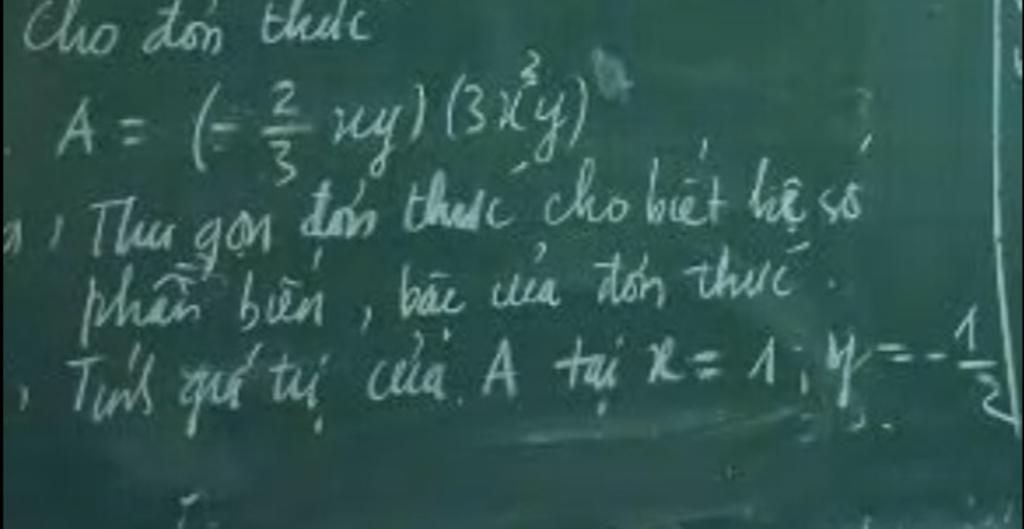 Cho đơn thức
A = (-2/3 xy) (3x²y)
a, Thu gọn đơn thức cho biết hệ số
phần biến, bậc của đơn thức.
, Tính giá trị của A tại x = 1, y = -1/2